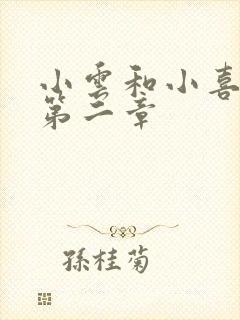 小雲和小喜
第二章
孫桂菊